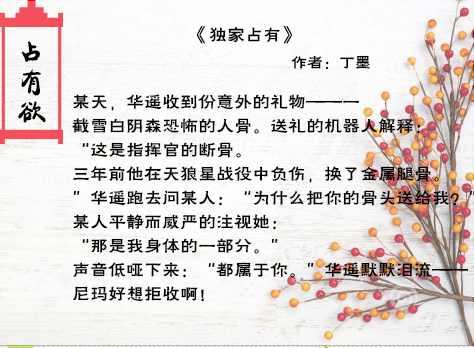 占有欲
《独家占有》
作者：丁墨
某天，华遥收到份意外的礼物————
截雪白阴森恐怖的人骨。送礼的机器人解释：
“这是指挥官的断骨。
三年前他在天狼星战役中负伤，换了金属腿骨。
”华遥跑去问某人：“为什么把你的骨头送给我？”
某人平静而威严的注视她：
“那是我身体的一部分。”
声音低哑下来：“都属于你。”华遥默默泪流——
尼玛好想拒收啊！